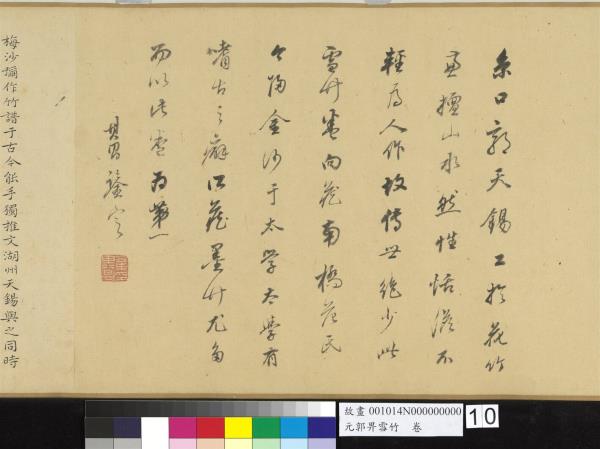 京口郭天錫工於花竹
兼擅山水然性恬澹不
輕為人作故傳世絕少此
雪竹卷向藏南橋范氏
今歸金沙于太學太學有
嗜古之癖所藏墨竹尤多
而以此卷為第一
其昌鑒定
梅沙彌作竹譜于古今能手獨推文湖州天錫與之同時
故畫 001014N000000000
元郭畀雪竹 卷
10